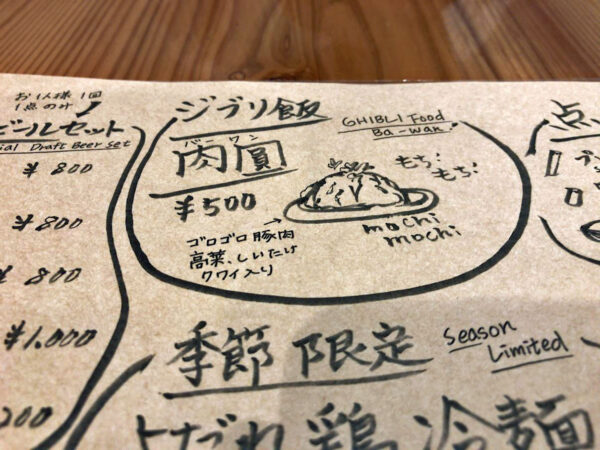 お1人様1回
1点のみ
ビールセット
ial Draft Beer set
¥800
¥800
¥800
¥1.000
200
ジブリ飯
GHIBLI Food
Ba-wan!
バーワン
肉圓
¥500
もち!
もち!
mochi
mochi
ゴロゴロ豚肉
高菜、しいたけ
クワイ入り
季節限定
Season
Limited
よだれ鶏冷麺
点